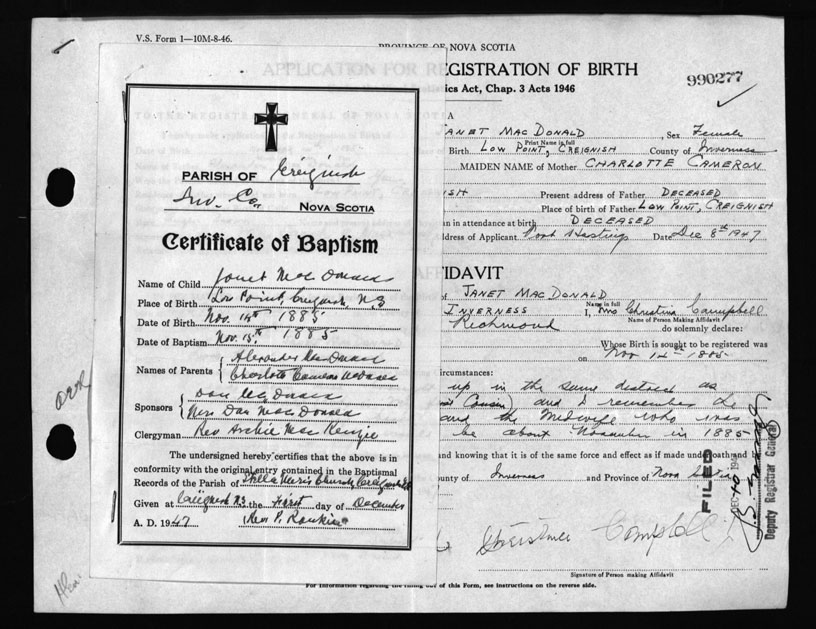 V.S. Form 1—10M-8-46.
PROVINCE OF NOVA SCOTIA
EGISTRATION OF BIRTH
ics Act, Chap. 3 Acts 1946
990277
PARISH OF Creignish
Inv. Co.
NOVA SCOTIA
Certificate of Baptism
Name of Child Janet MacDonald
Place of Birth Low Point, Creignish, N.S
Date of Birth Nov. 14th 1885
Date of Baptism Nov. 15th 1885
Names of Parents Alexander MacDonald
Charlotte Cameron
Sponsors Dan McDonald
Mrs Dan MacDonald
Clergyman Rev Archie MacKenzie
The undersigned hereby certifies that the above is in
conformity with the original entry contained in the Baptismal
Records of the Parish of Stella Maris Church Creignish
Given at Creignish N.S the First day of December
A. D. 1947 Rev P. Rankin
JANET MACDONALD, Sex Female
Print Name in full
Birth LOW POINT, CREIGNISH County of Inverness
MAIDEN NAME of Mother CHARLOTTE CAMERON
ISH Present address of Father DECEASED
Place of birth of Father LOW POINT, CREIGNISH
n in attendance at birth DECEASED
ddress of Applicant Port Hastings Date Dec 8th 1947
FIDAVIT
of JANET MACDONALD
Name in full
INVERNESS I, Mrs Christina Campbell
Name of Person Making Affidavit
Richmond do solemnly declare:
Whose Birth is sought to be registered was
on Nov 14th 1885
circumstances:
up in the same district as
Cousin) and I remember
and the Midwife who was
be about November in 1885
and knowing that it is of the same force and effect as if made under oath and by
ounty of Inverness and Province of Nova Scotia
FILED
DEC 10 194
Deputy Registrar General
Christina Campbell
Signature of Person making Affidavit
For information regarding the filling out of this Form, see instructions on the reverse side.